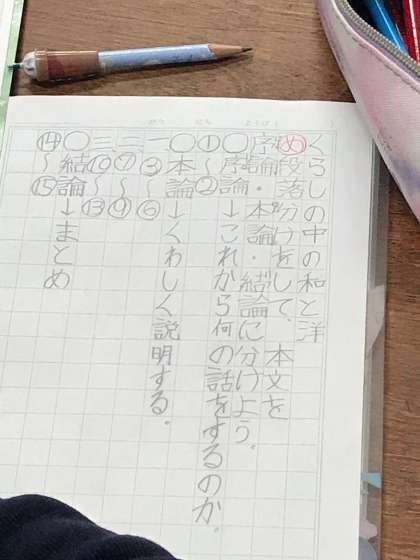 くらしの中の和と洋
め 段落分けをして、本文を
序論・本論・結論に分けよう。
〇序論↓これから何の話をするのか。
①〜②
〇本論↓くわしく説明する。
一 ③〜⑥
二 ⑦〜⑨
三 ⑩〜⑬
〇結論↓まとめ
⑭〜⑮